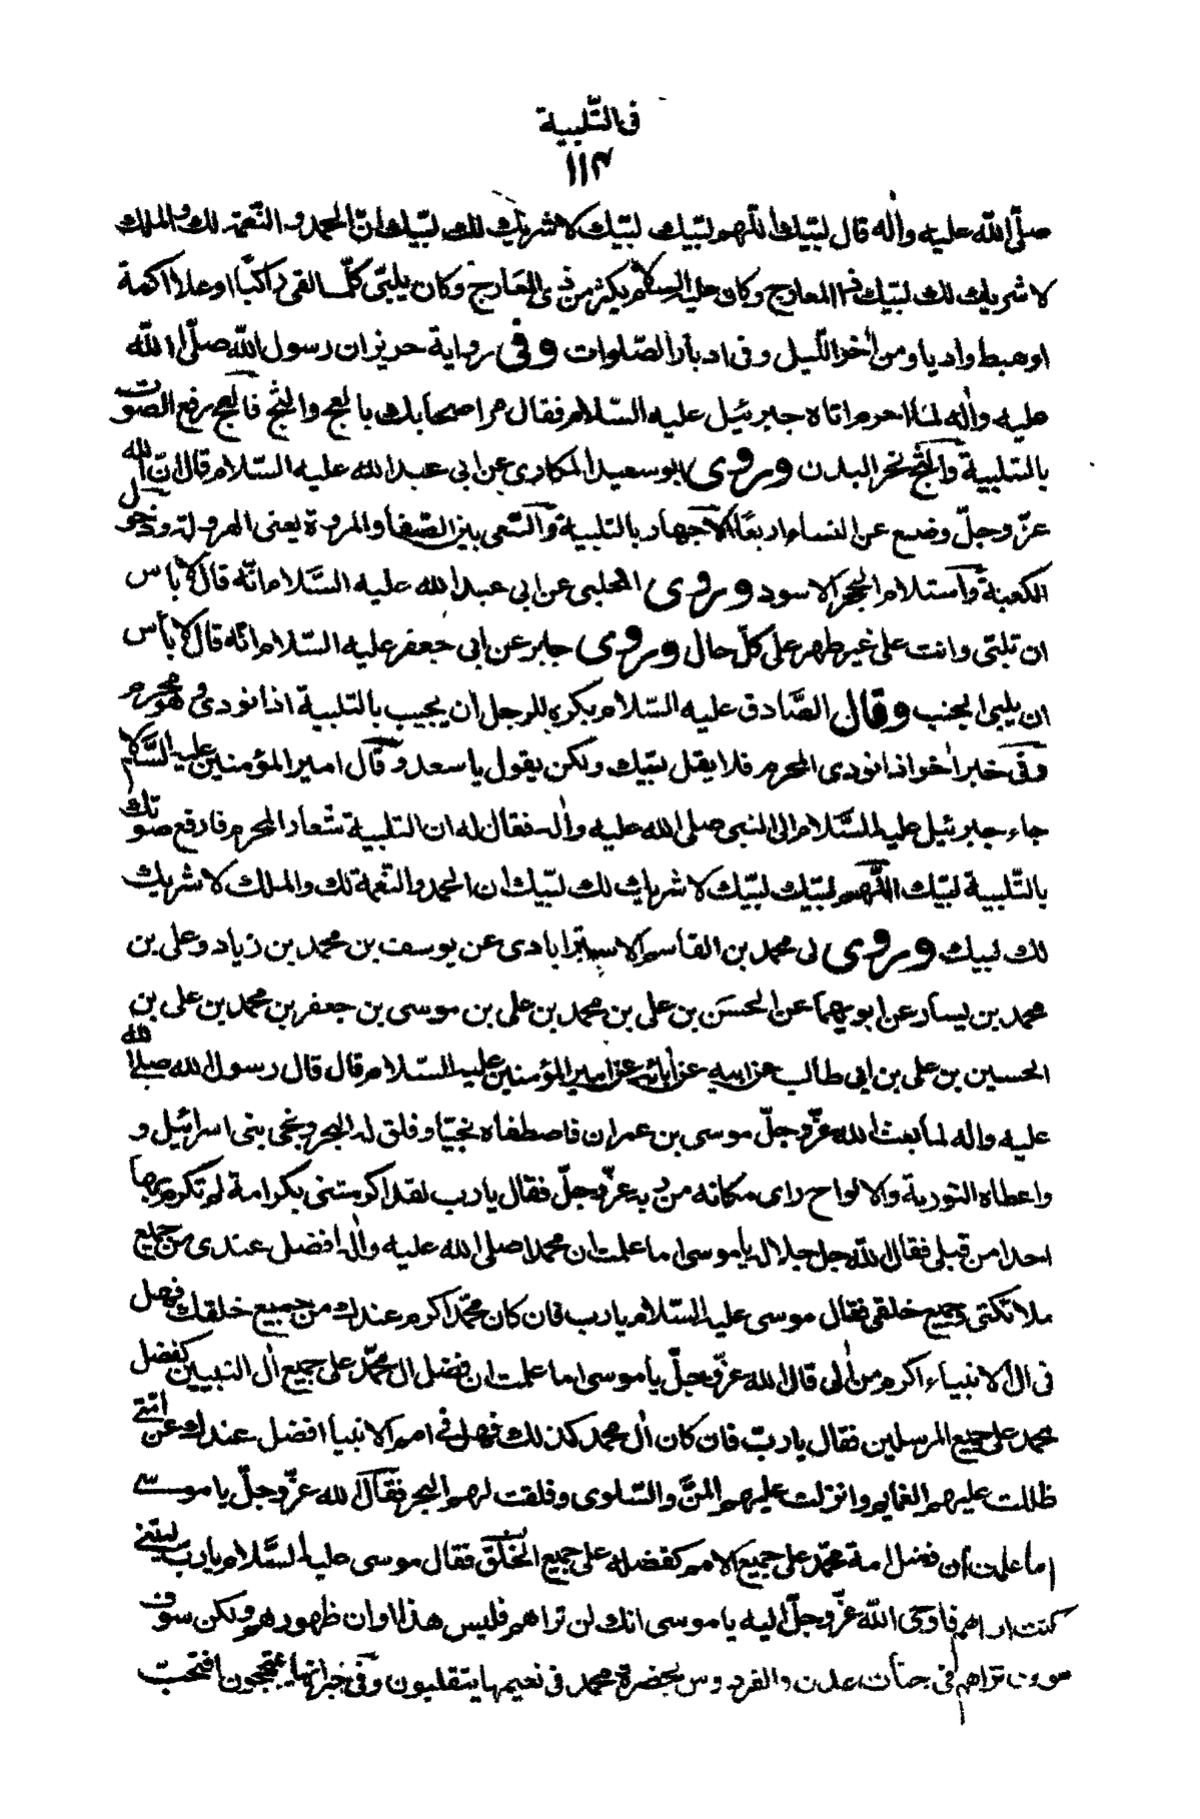 فی التّلبیة
١١٣
صلّی اللّه علیه واٰله قال لبّیك اللّهم لبّیك لبّیك لا شریك لك لبّیك انّ الحمد والنّعمة لك والملك
لا شریك لك لبّیك ذا المعارج وكان علیه السلام یكثر من ذی المعارج وكان یلبّی كلّما لقی راكبًا او علا اكمة
او هبط وادیا ومن اٰخر اللّیل وفی ادبار الصّلوات وفی روایة حریز ان رسول اللّه صلّی اللّه
علیه واٰله لمّا احرم اتاه جبرئیل علیه السّلام فقال مر اصحابك بالعج والثج فالعج رفع الصّوت
بالتلبیة والثج نحر البدن وروی ابوسعید المكاری عن ابی عبد الله علیه السّلام قال انّ الله
عزّ وجلّ وضع عن النساء اربعًا الاجهار بالتلبیة والسّعی بین الصّفا والمروة یعنی الهرولة ودخول
الكعبة واستلام الحجر الاسود وروی الحلبی عن ابی عبد الله علیه السَّلام انّه قال لا بأس
ان تلبّی وانت علی غیر طهر علی كلّ حال وروی جابر عن ابی جعفر علیه السّلام انّه قال لا بأس
ان یلبی الجنب وقال الصَّادق علیه السّلام یكره للرجل ان یجیب بالتلبیة اذا نودی وهو محرم
وفی خبر اٰخر اذا نودی المحرم فلا یقل لبّیك ولكن یقول یا سعد وقال امیر المؤمنین علیه السَّلام
جاء جبرئیل علیه السَّلام الی النبی صلی الله علیه واٰله فقال له ان التلبیة شعار المحرم فارفع صوتك
بالتّلبیة لبّیك اللّهم لبّیك لبّیك لا شریك لك لبّیك ان الحمد والنّعمة لك والملك لا شریك
لك لبیك وروی لی محمد بن القاسم الاسترابادی عن یوسف بن محمّد بن زیاد وعلی بن
محمد بن یسار عن ابویهما عن الحسَن بن علی بن محمد بن علی بن موسی بن جعفر بن محمد بن علی بن
الحسین بن علی بن ابی طالب عن ابیه عن اٰبائه عن امیر المؤمنین علیه السّلام قال قال رسول الله صلی الله
علیه واله لما بعث الله عزّ وجلّ موسی بن عمران فاصطفاه نجیّا وفلق له البحر ونجی بنی اسرائیل و
واعطاه التوریة والالواح رای مكانه من ربه عزّ وجلّ فقال یا رب لقد اكرمتنی بكرامة لم تكرم بها
احدا من قبلی فقال اللّه جل جلاله یا موسی اما علمت ان محمدا صلی الله علیه واٰله افضل عندی من جمیع
ملائكتی وجمیع خلقی فقال موسی علیه السّلام یا رب فان كان محمّد اكرم عندك من جمیع خلقك فهل
فی اٰل الانبیاء اكرم من اٰلی قال الله عزّ وجلّ یا موسی اما علمت ان فضل اٰل محمّد علی جمیع اٰل النبیین كفضل
محمد علی جمیع المرسلین فقال یا ربّ فان كان اٰل محمد كذلك فهل فی امم الانبیا افضل عندك من امّتی
ظللت علیهم الغمام وانزلت علیهم المنَّ والسّلوی وفلقت لهم البحر فقال الله عزّ وجلّ یا موسی
اما علمت ان فضل امة محمّد علی جمیع الامم كفضله علی جمیع الخلق فقال موسی علیه السَّلام یا رب لیتنی
كنت اراهم فاوحی اللّه عزّ وجلّ الیه یا موسی انك لن تراهم فلیس هذا اوان ظهورهم ولكن سوف
سوف تراهم فی جنّات عدن والفردوس بحضرة محمد فی نعیمها یتقلبون وفی خیراتها یتبجحون افتحبّ